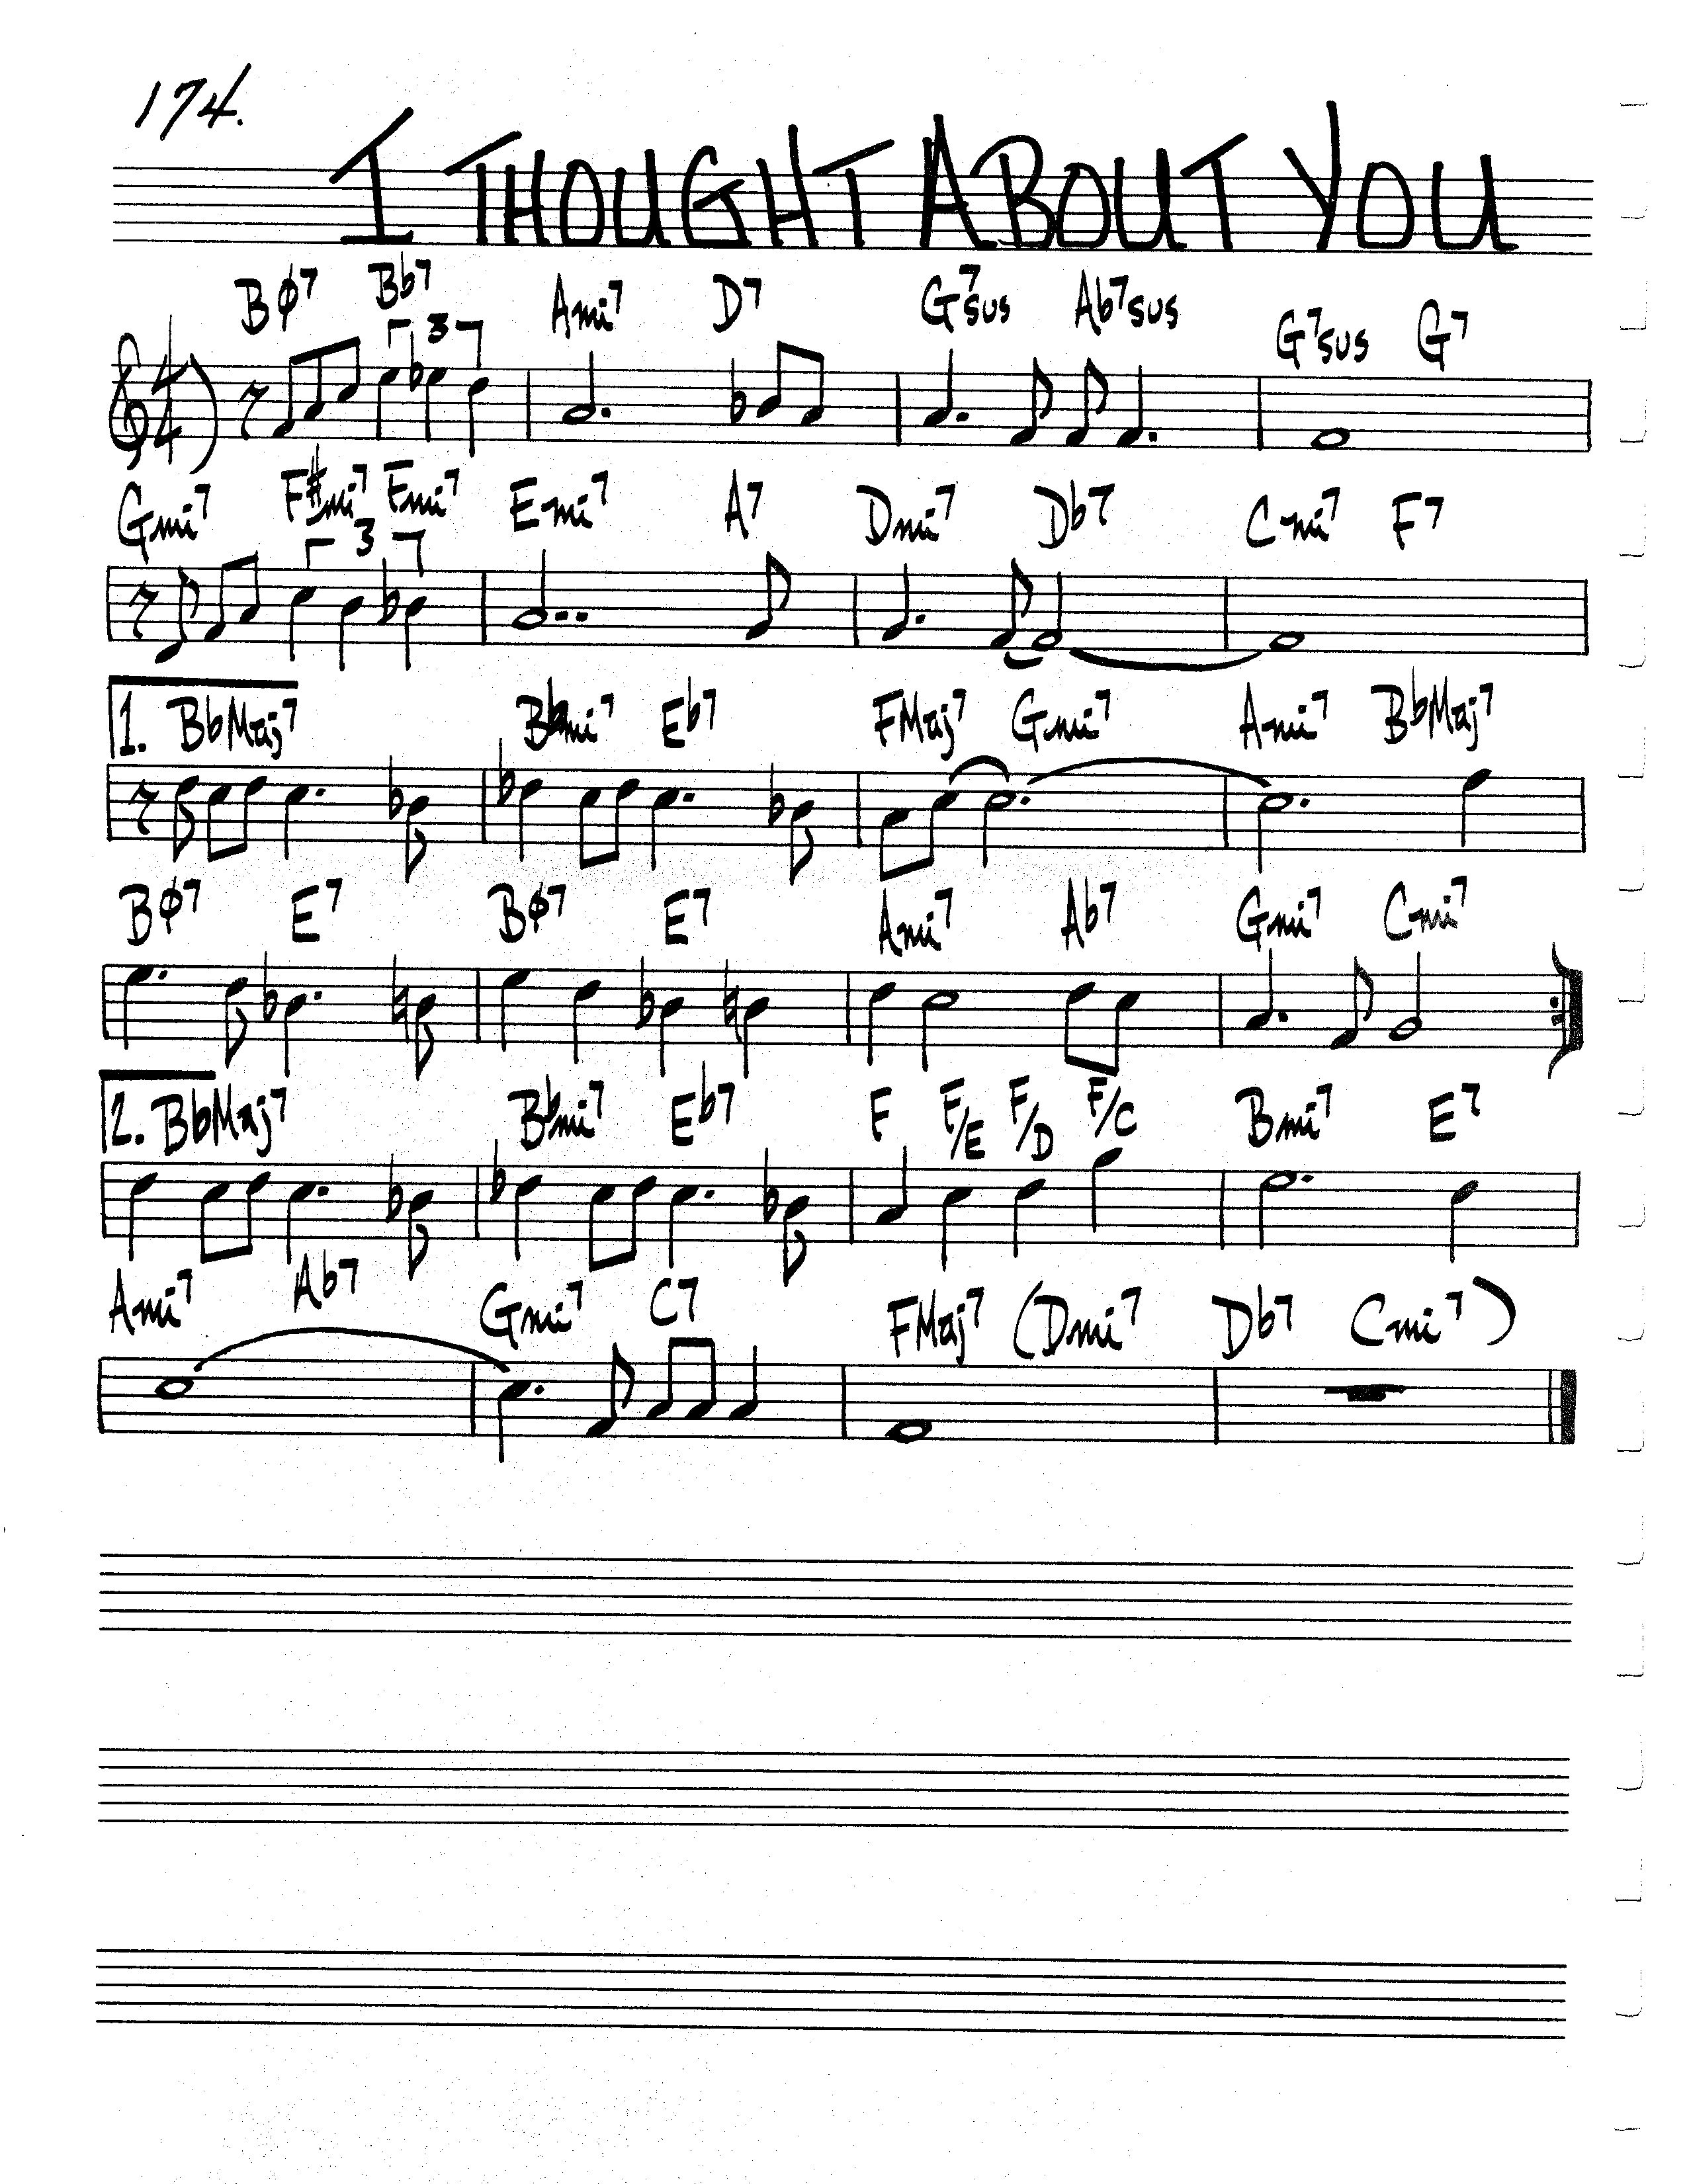 174.
I THOUGHT ABOUT YOU
Bø7 Bb7 Ami7 D7 G7sus Ab7sus G7sus G7
3
4 4
Gmi7 F#mi7 Fmi7 Emi7 A7 Dmi7 Db7 Cmi7 F7
3
1. BbMaj7 Bbmi7 Eb7 FMaj7 Gmi7 Ami7 BbMaj7
Bø7 E7 Bø7 E7 Ami7 Ab7 Gmi7 Cmi7
2. BbMaj7 Bbmi7 Eb7 F F/E F/D F/C Bmi7 E7
Ami7 Ab7 Gmi7 C7 FMaj7 (Dmi7 Db7 Cmi7)